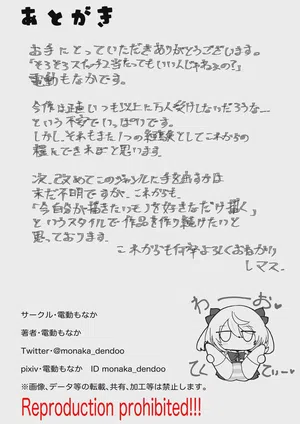 あとがき
お手にとっていただきありがとうございます。
「そろそろスイッチ2当たってもいいんじゃねぇの？」
電動もなかです。
今作は正直いつも以上に万人受けしないだろうな……
という不安でいっぱいです。
しかし、それもまた1つの経験としてこれからの
糧にできればと思います。
次、改めてこのジャンルに手を出すかは
未だ不明ですが、これからも、
「今自分が描きたいものを好きなだけ描く」
というスタイルで作品を作り続けたいと
思っております。
これからも何卒よろしくおねがい
しマス
わーお♥
てくてぃー♥
サークル・電動もなか
著者・電動もなか
Twitter・@monaka_dendoo
pixiv・電動もなか ID monaka_dendoo
※画像、データ等の転載、共有、加工等は禁止します。
Reproduction prohibited!!!